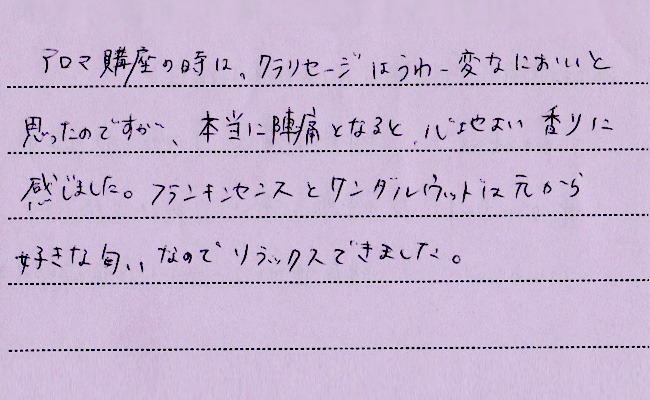 アロマ購座の時は、クラリセージはうわー変なにおいと
思ったのですが、本当に陣痛となると、心地よい香りに
感じました。フランキンセンスとサンダルウッドは元から
好きな匂いなのでリラックスできました。